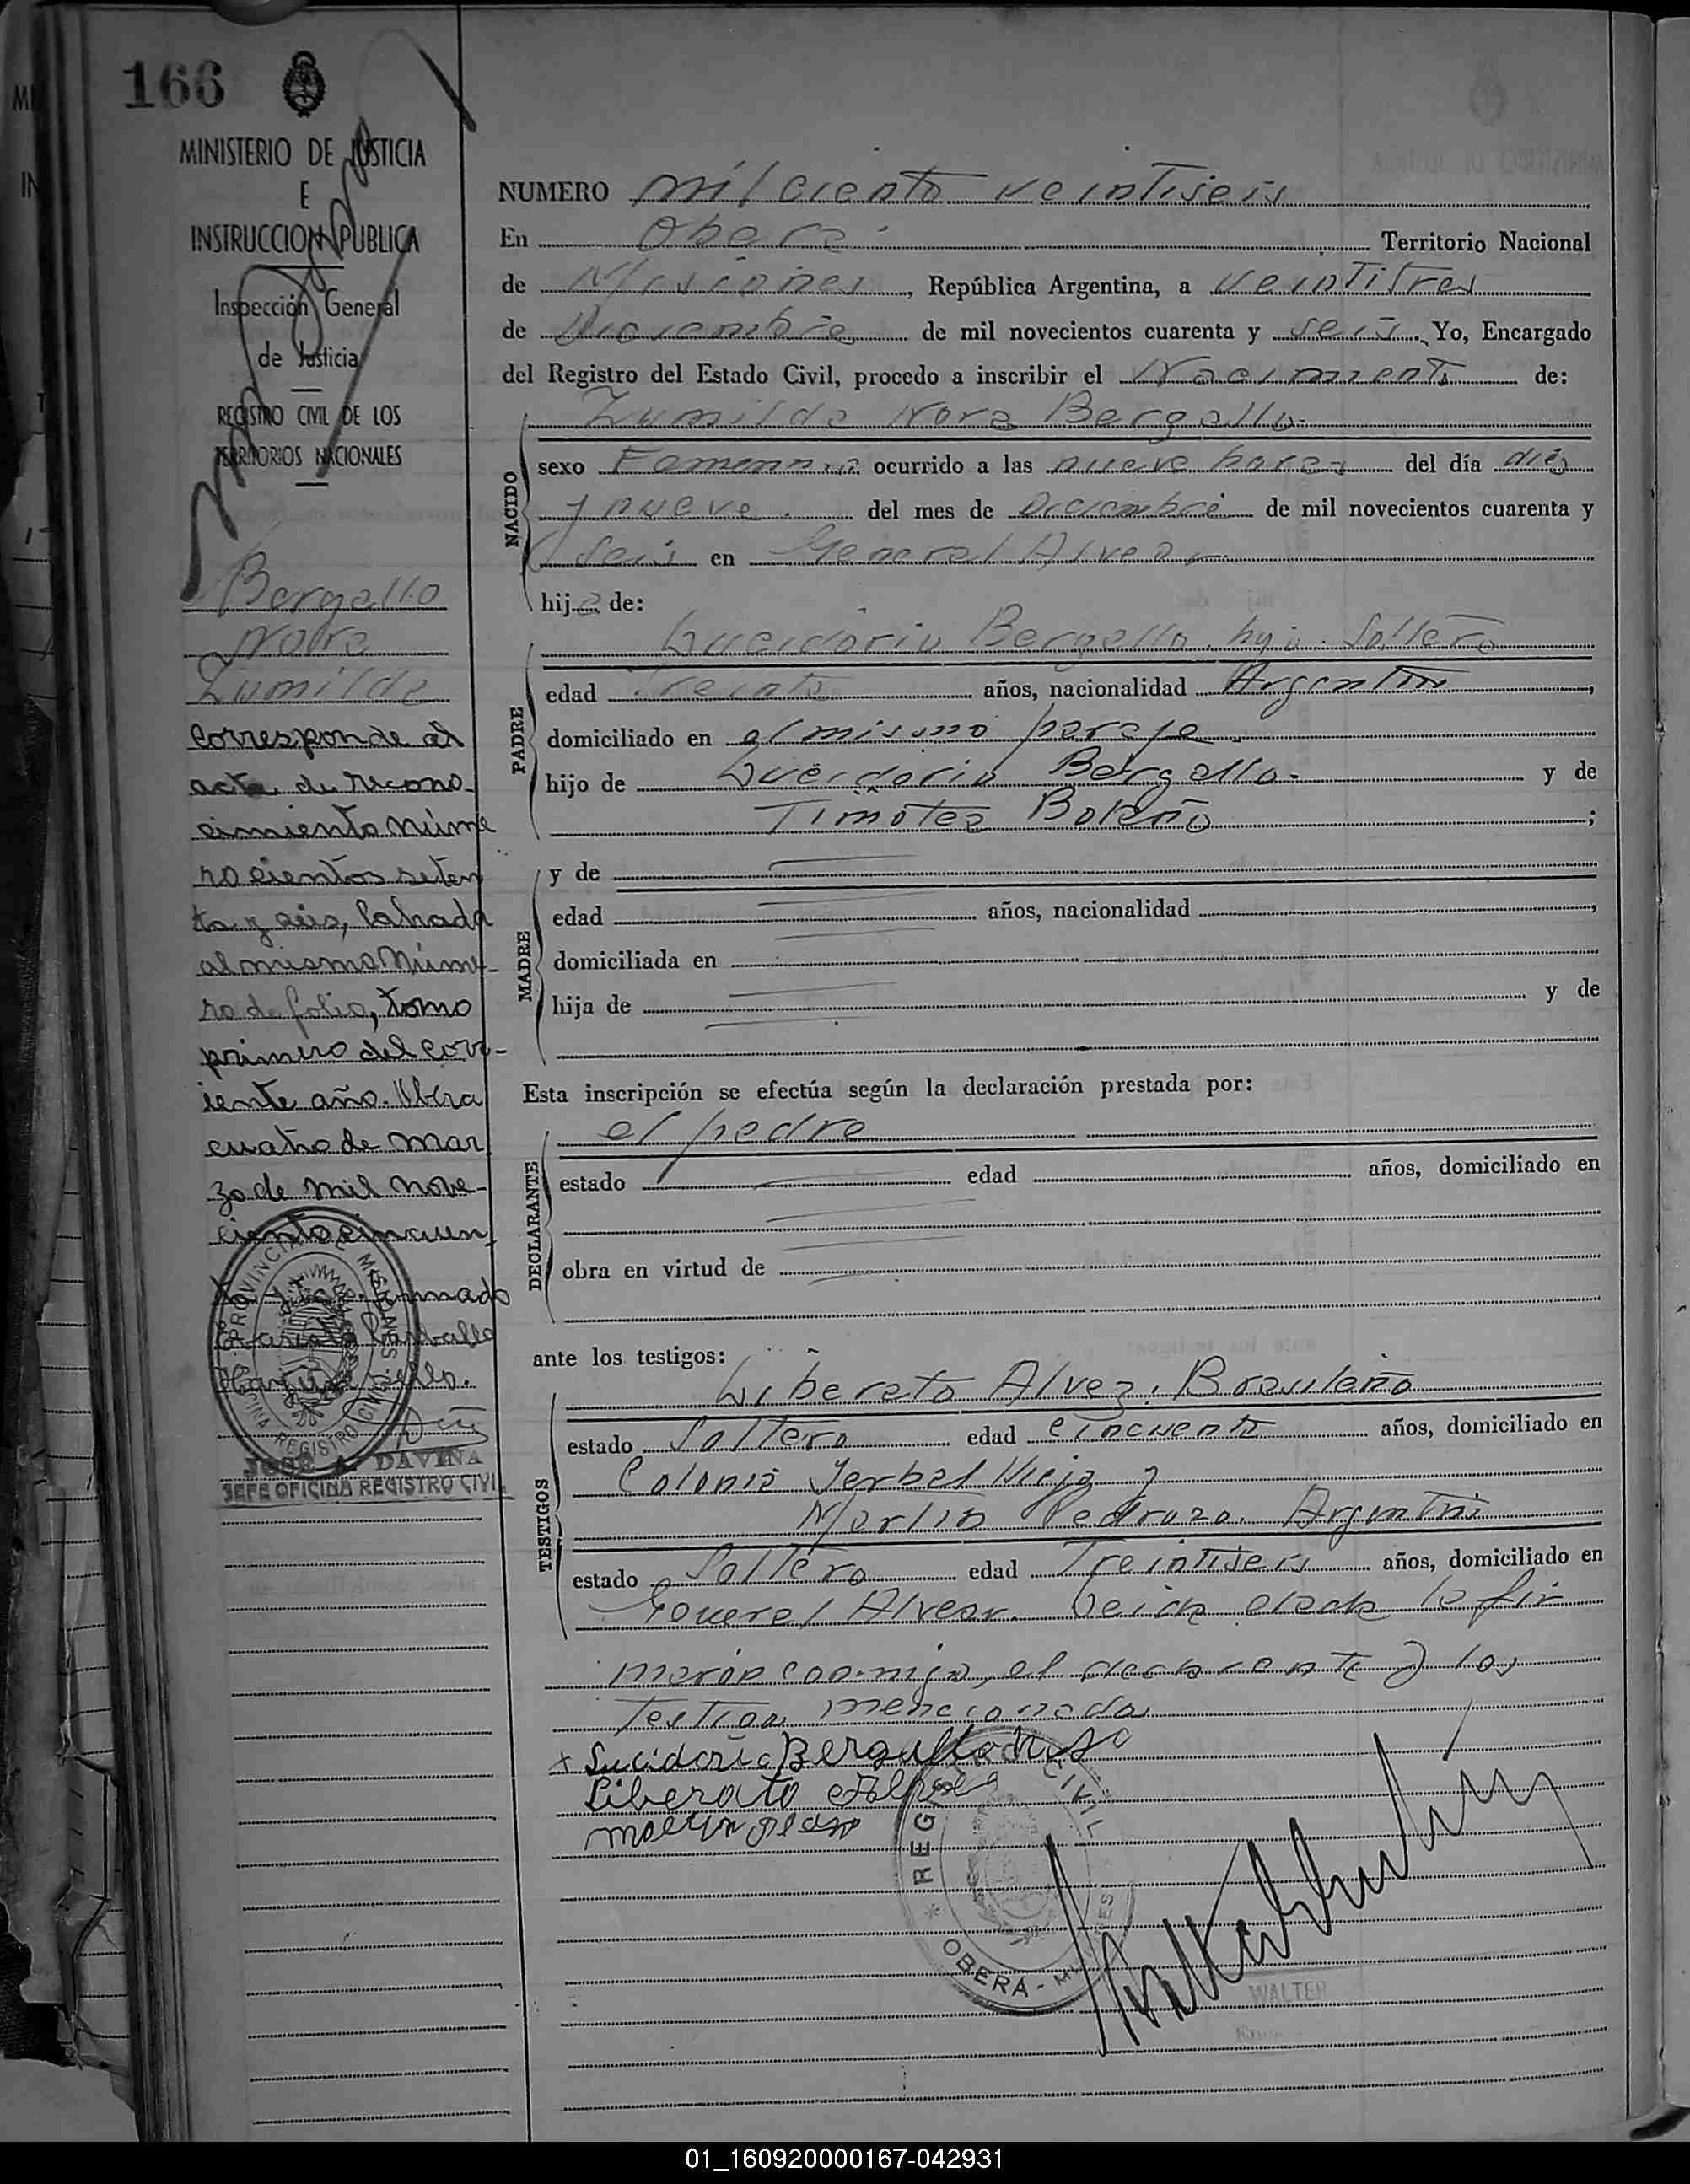 166
MINISTERIO DE JUSTICIA
E
INSTRUCCION PUBLICA
Inspección General
de Justicia
REGISTRO CIVIL DE LOS
TERRITORIOS NACIONALES
Bergallo
Nora
Zumilda
Corresponde al
acta de recono-
cimiento núme
ro cientos seten
ta y seis, labrada
al mismo núme-
ro de folio, tomo
primero del corr-
iente año. Oberá
cuatro de mar
zo de mil nove-
ciento cincuen
firmado
Carballo
sello.
PROVINCIA DE MISIONES
REGISTRO CIVIL
JOSE A. DAVIÑA
JEFE OFICINA REGISTRO CIVIL
NUMERO mil ciento veintiseis
En Obera Territorio Nacional
de Misiones, República Argentina, a veintitres
de Diciembre de mil novecientos cuarenta y seis. Yo, Encargado
del Registro del Estado Civil, procedo a inscribir el Nacimiento de:
NACIDO
Zumilda Nora Bergallo.
sexo Femenino ocurrido a las nueve horas del día diez
y nueve. del mes de Diciembre de mil novecientos cuarenta y
seis en General Alvear
hija de:
PADRE
Lucidorio Bergallo. hijo. Soltero
edad Treinta años, nacionalidad Argentino,
domiciliado en el mismo paraje.
hijo de Lucidorio Bergallo. y de
Timotea Boleño;
MADRE
y de
edad años, nacionalidad ,
domiciliada en
hija de y de
Esta inscripción se efectúa según la declaración prestada por:
DECLARANTE
el padre
estado edad años, domiciliado en
obra en virtud de
ante los testigos:
TESTIGOS
Liberato Alvez. Brasileño
estado Soltero edad cincuenta años, domiciliado en
Colonia Yerbal Viejo y
Martin Pedrozo. Argentino
estado Soltero edad Treintiseis años, domiciliado en
General Alvear. Leida el acta la fir
maron conmigo, el declarante y los
Testigos mencionados
x Lucidorio Bergallo hijo
Liberato
REGISTRO CIVIL
OBERÁ - MISIONES
WALTER
01_160920000167-042931